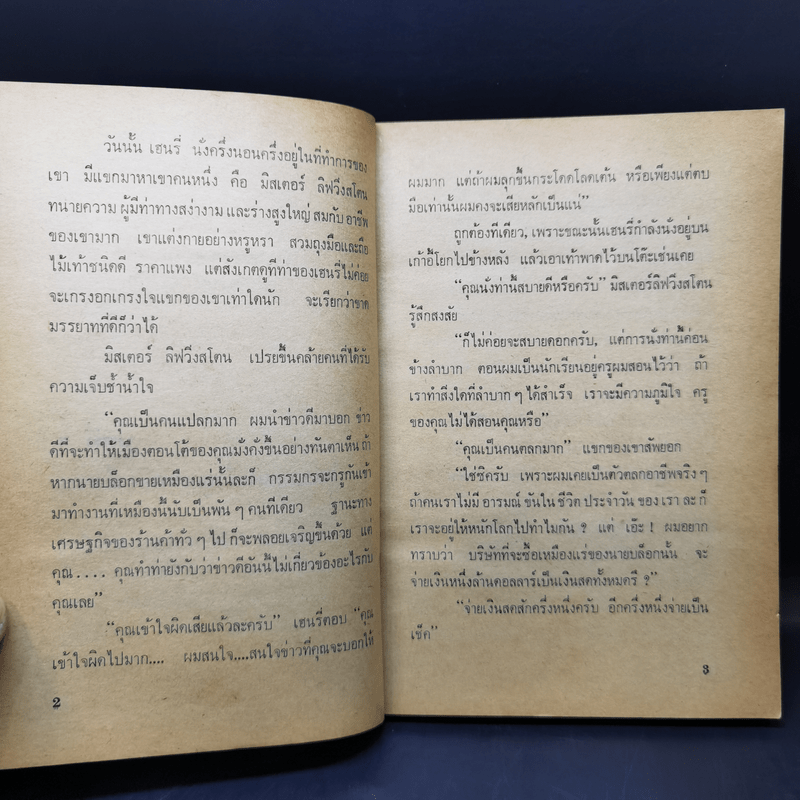 วันนั้น เฮนรี่ นั่งครึ่งนอนครึ่งอยู่ในที่ทำการของ
เขา มีแขกมาหาเขาคนหนึ่ง คือ มิสเตอร์ ลิฟวิ่งสโตน
ทนายความ ผู้มีท่าทางสง่างาม และร่างสูงใหญ่ สมกับ อาชีพ
ของเขามาก เขาแต่งกายอย่างหรูหรา สวมถุงมือและถือ
ไม้เท้าชนิดดี ราคาแพง แต่สังเกตดูทีท่าของเฮนรี่ไม่ค่อย
จะเกรงอกเกรงใจแขกของเขาเท่าใดนัก จะเรียกว่าขาด
มรรยาทที่ดีก็ว่าได้
มิสเตอร์ ลิฟวิ่งสโตน เปรยขึ้นคล้ายคนที่ได้รับ
ความเจ็บช้ำน้ำใจ
“คุณเป็นคนแปลกมาก ผมนำข่าวดีมาบอก ข่าว
ดีที่จะทำให้เมืองตอนโต้ของคุณมั่งคั่งขึ้นอย่างทันตาเห็น ถ้า
หากนายบล็อกขายเหมืองแร่นั้นละก็ กรรมกรจะกรูกันเข้า
มาทำงานที่เหมืองนี้นับเป็นพัน ๆ คนทีเดียว ฐานะทาง
เศรษฐกิจของร้านค้าทั่ว ๆ ไป ก็จะพลอยเจริญขึ้นด้วย แต่
คุณ.... คุณทำท่ายังกับว่าข่าวดีอันนี้ไม่เกี่ยวข้องอะไรกับ
คุณเลย”
“คุณเข้าใจผิดเสียแล้วละครับ” เฮนรี่ตอบ “คุณ
เข้าใจผิดไปมาก.... ผมสนใจ....สนใจข่าวที่คุณจะบอกให้
2
ผมมาก แต่ถ้าผมลุกขึ้นกระโดดโลดเต้น หรือเพียงแต่ตบ
มือเท่านั้นผมคงจะเสียหลักเป็นแน่”
ถูกต้องทีเดียว, เพราะขณะนั้นเฮนรี่กำลังนั่งอยู่บน
เก้าอี้โยกไปข้างหลัง แล้วเอาเท้าพาดไว้บนโต๊ะเช่นเคย
“คุณนั่งท่านี้สบายดีหรือครับ” มิสเตอร์ลิฟวิ่งสโตน
รู้สึกสงสัย
“ก็ไม่ค่อยจะสบายดอกครับ, แต่การนั่งท่านี้ค่อน
ข้างลำบาก ตอนผมเป็นนักเรียนอยู่ครูผมสอนไว้ว่า ถ้า
เราทำสิ่งใดที่ลำบาก ๆ ได้สำเร็จ เราจะมีความภูมิใจ ครู
ของคุณไม่ได้สอนคุณหรือ”
“คุณเป็นคนตลกมาก” แขกของเขาสัพยอก
“ใช่ซิครับ เพราะผมเคยเป็นตัวตลกอาชีพจริง ๆ
ถ้าคนเราไม่มี อารมณ์ ขันใน ชีวิต ประจำวัน ของ เรา ละ ก็
เราจะอยู่ให้หนักโลกไปทำไมกัน ? แต่ เอ๊ะ ! ผมอยาก
ทราบว่า บริษัทที่จะซื้อเหมืองแร่ของนายบล็อกนั้น จะ
จ่ายเงินหนึ่งล้านดอลลาร์เป็นเงินสดทั้งหมดรึ ?”
“จ่ายเงินสดสักครึ่งหนึ่งครับ อีกครึ่งหนึ่งจ่ายเป็น
เช็ค”
3